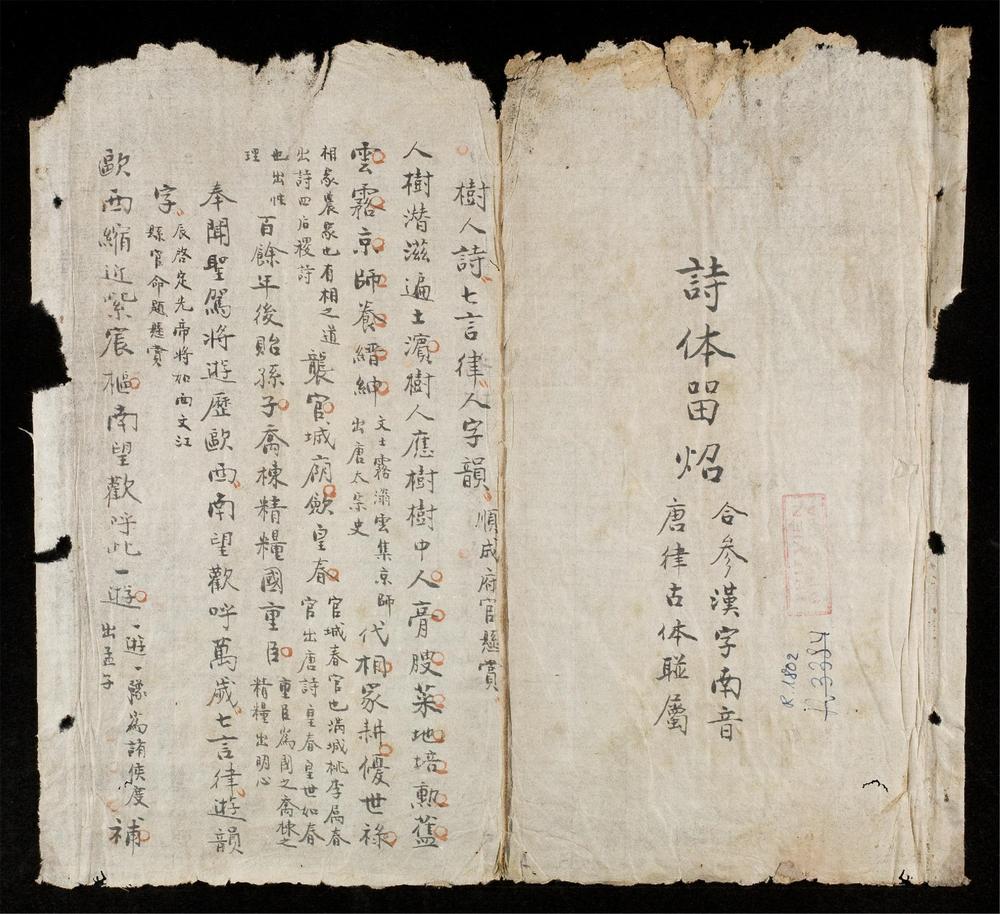 詩体畱炤
合參漢字南音
唐律古体聯屬
R.1802
樹人詩七言律人字韻
順成府官懸賞
人樹潛滋遍土濱樹人應樹樹中人膏腴菜地培勳蓋
雲霧京師養縉紳
文士霧滃雲集京師
出唐太宗史
代相家耕優世祿
相家農家也有相之道
出詩四后稷詩
襲官城府飲皇春
官城春官也滿城桃李属春
官出唐詩皇春皇世如春
也出性
理
百餘年後貽孫子喬棟精糧國重臣
重臣為國之喬棟之
精糧出明心
奉聞聖駕將遊歷歐西南望歡呼萬歲七言律遊韻
字
辰啓定先帝將如西文江
縣官命題懸賞
歐西縮近紫宸樞南望歡呼此一遊
一遊一豫為諸侯度
出孟子
補